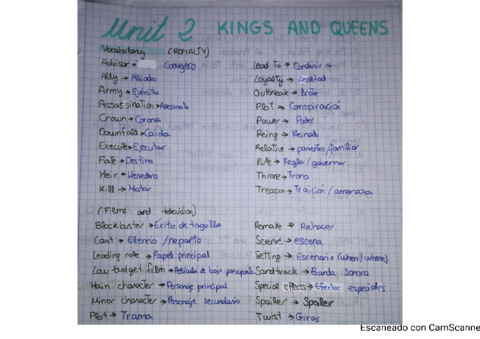 Unit 2 KINGS AND QUEENS
Vocabulary (ROYALTY)
Advisor → Consejero
Ally → Aliado
Army → Ejército
Assassination → Asesinato
Crown → Corona
Downfall → Caída
Execute → Ejecutar
Fate → Destino
Heir → Heredero
Kill → Matar
Lead to → Conducir a
Loyalty → Lealtad
Outbreak → Brote
Plot → Conspiración
Power → Poder
Reing → Reinado
Relative → parientes/familiar
Rule → Regla / gobernar
Throne → Trono
Treason → Traición / amenaza
(Films and television)
Blockbuster → Éxito de taquilla
Cast → Elenco / reparto
Leading role → Papel principal
Low budget film → Película de bajo presupuesto
Main character → Personaje principal
Minor character → Personaje secundario
Plot → Trama
Remake → Rehacer
Scene → escena
Setting → Escenario (when/where)
Soundtrack → Banda sonora
Special effects → Efectos especiales
Spoiler → Spoiler
Twist → Giros
Escaneado con CamScanne